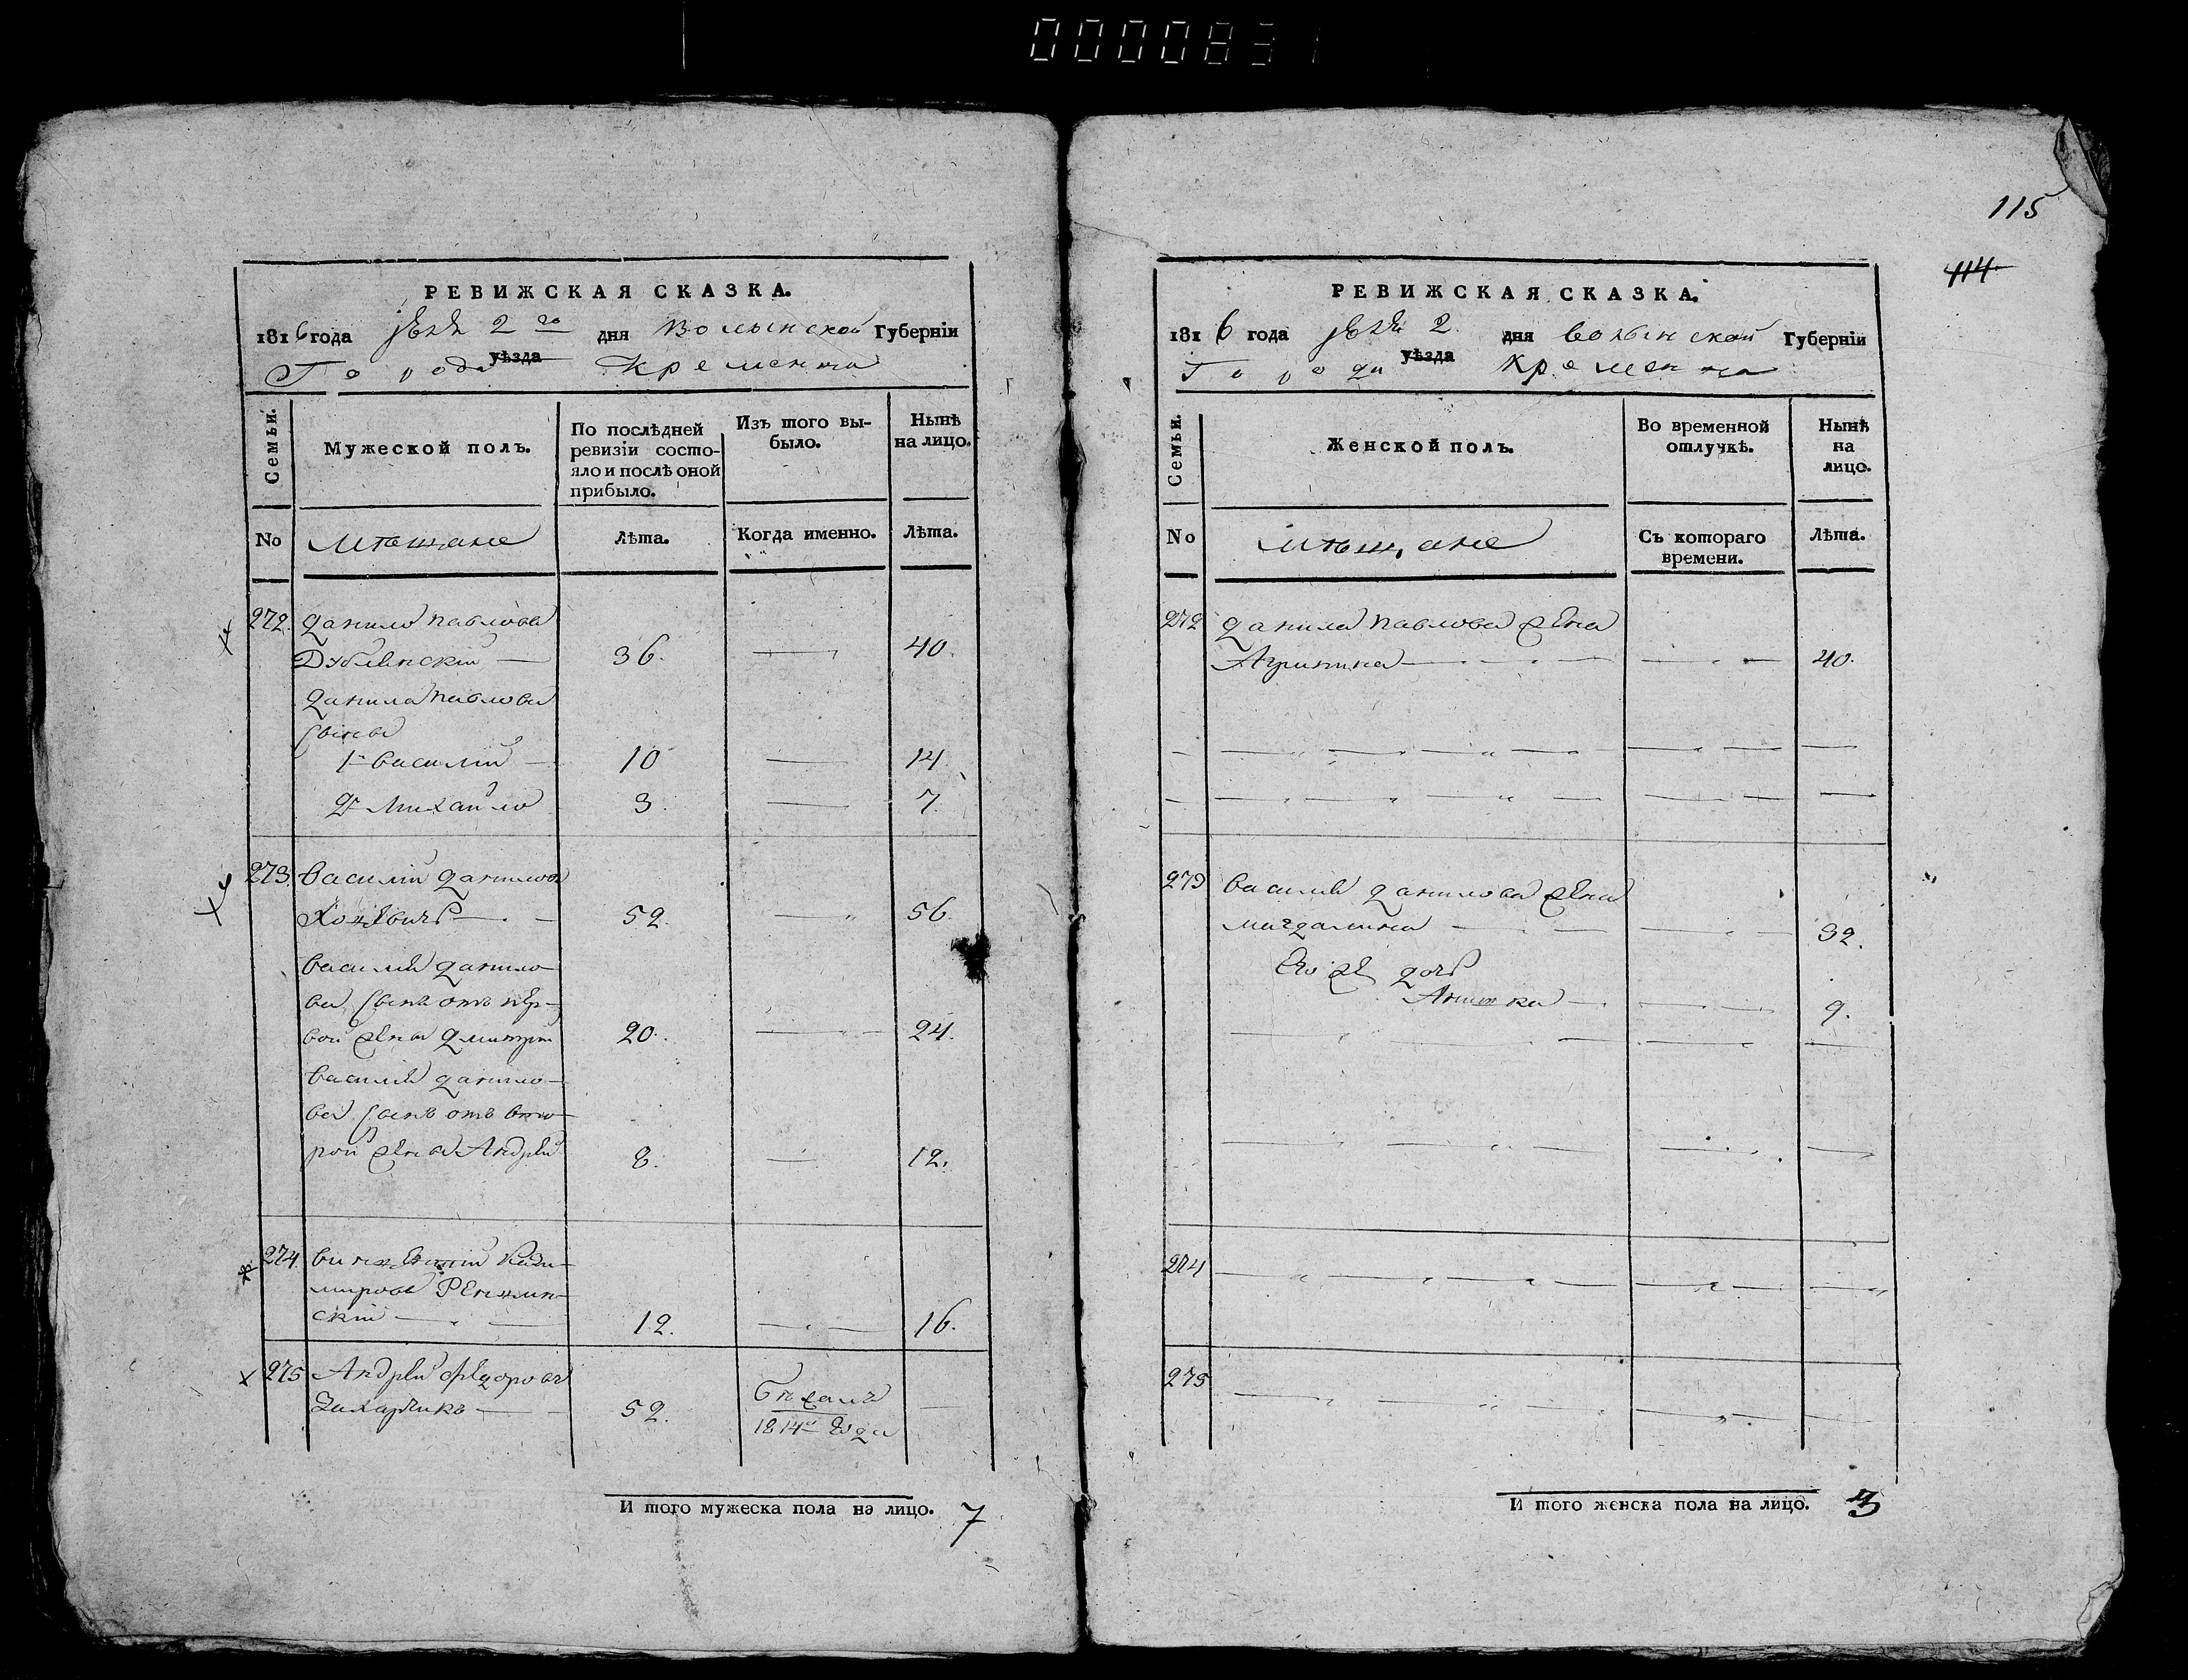 0000831
115
114
РЕВИЖСКАЯ СКАЗКА.
1816 года 2 го дня Волынской Губерніи
Города уѣзда Кременца
Семьи.
Мужеской полъ.
По послѣдней ревизіи состояло и послѣ оной прибыло.
Изъ того выбыло.
Нынѣ на лицо.
No
Мѣщане
Лѣта.
Когда именно.
Лѣта.
272. Данило Павловъ
Дублѣнскій — 36. — 40.
Данила Павлова
Сыны
1й Василій — 10 — 14
2й Михайло 3. — 7.
273. Василій Даниловъ
52. — 56.
Василія Данило-
ва Сынъ отъ пер-
вой жены Дмитрій 20. — 24.
Василія Данило-
ва Сынъ отъ вто-
рой жены Андрей 8. — 12.
274. Винцентій Кази-
мировъ
скій — 12. — 16.
275 Андрей Федоровъ
Захарчикъ — 52. Бѣжалъ —
1814го года
И того мужеска пола на лицо. 7
РЕВИЖСКАЯ СКАЗКА.
1816 года 2. дня Волынской Губерніи
Города уѣзда Кременца
Семьи.
Женской полъ.
Во временной отлучкѣ.
Нынѣ на лицо.
No
Мѣщане
Съ котораго времени.
Лѣта.
272 Данила Павлова жена
Агрипина — — 40.
273 Василія Данилова жена
Магдалина — — 32.
Его же дочь
— — 9.
274
275
И того женска пола на лицо. 3